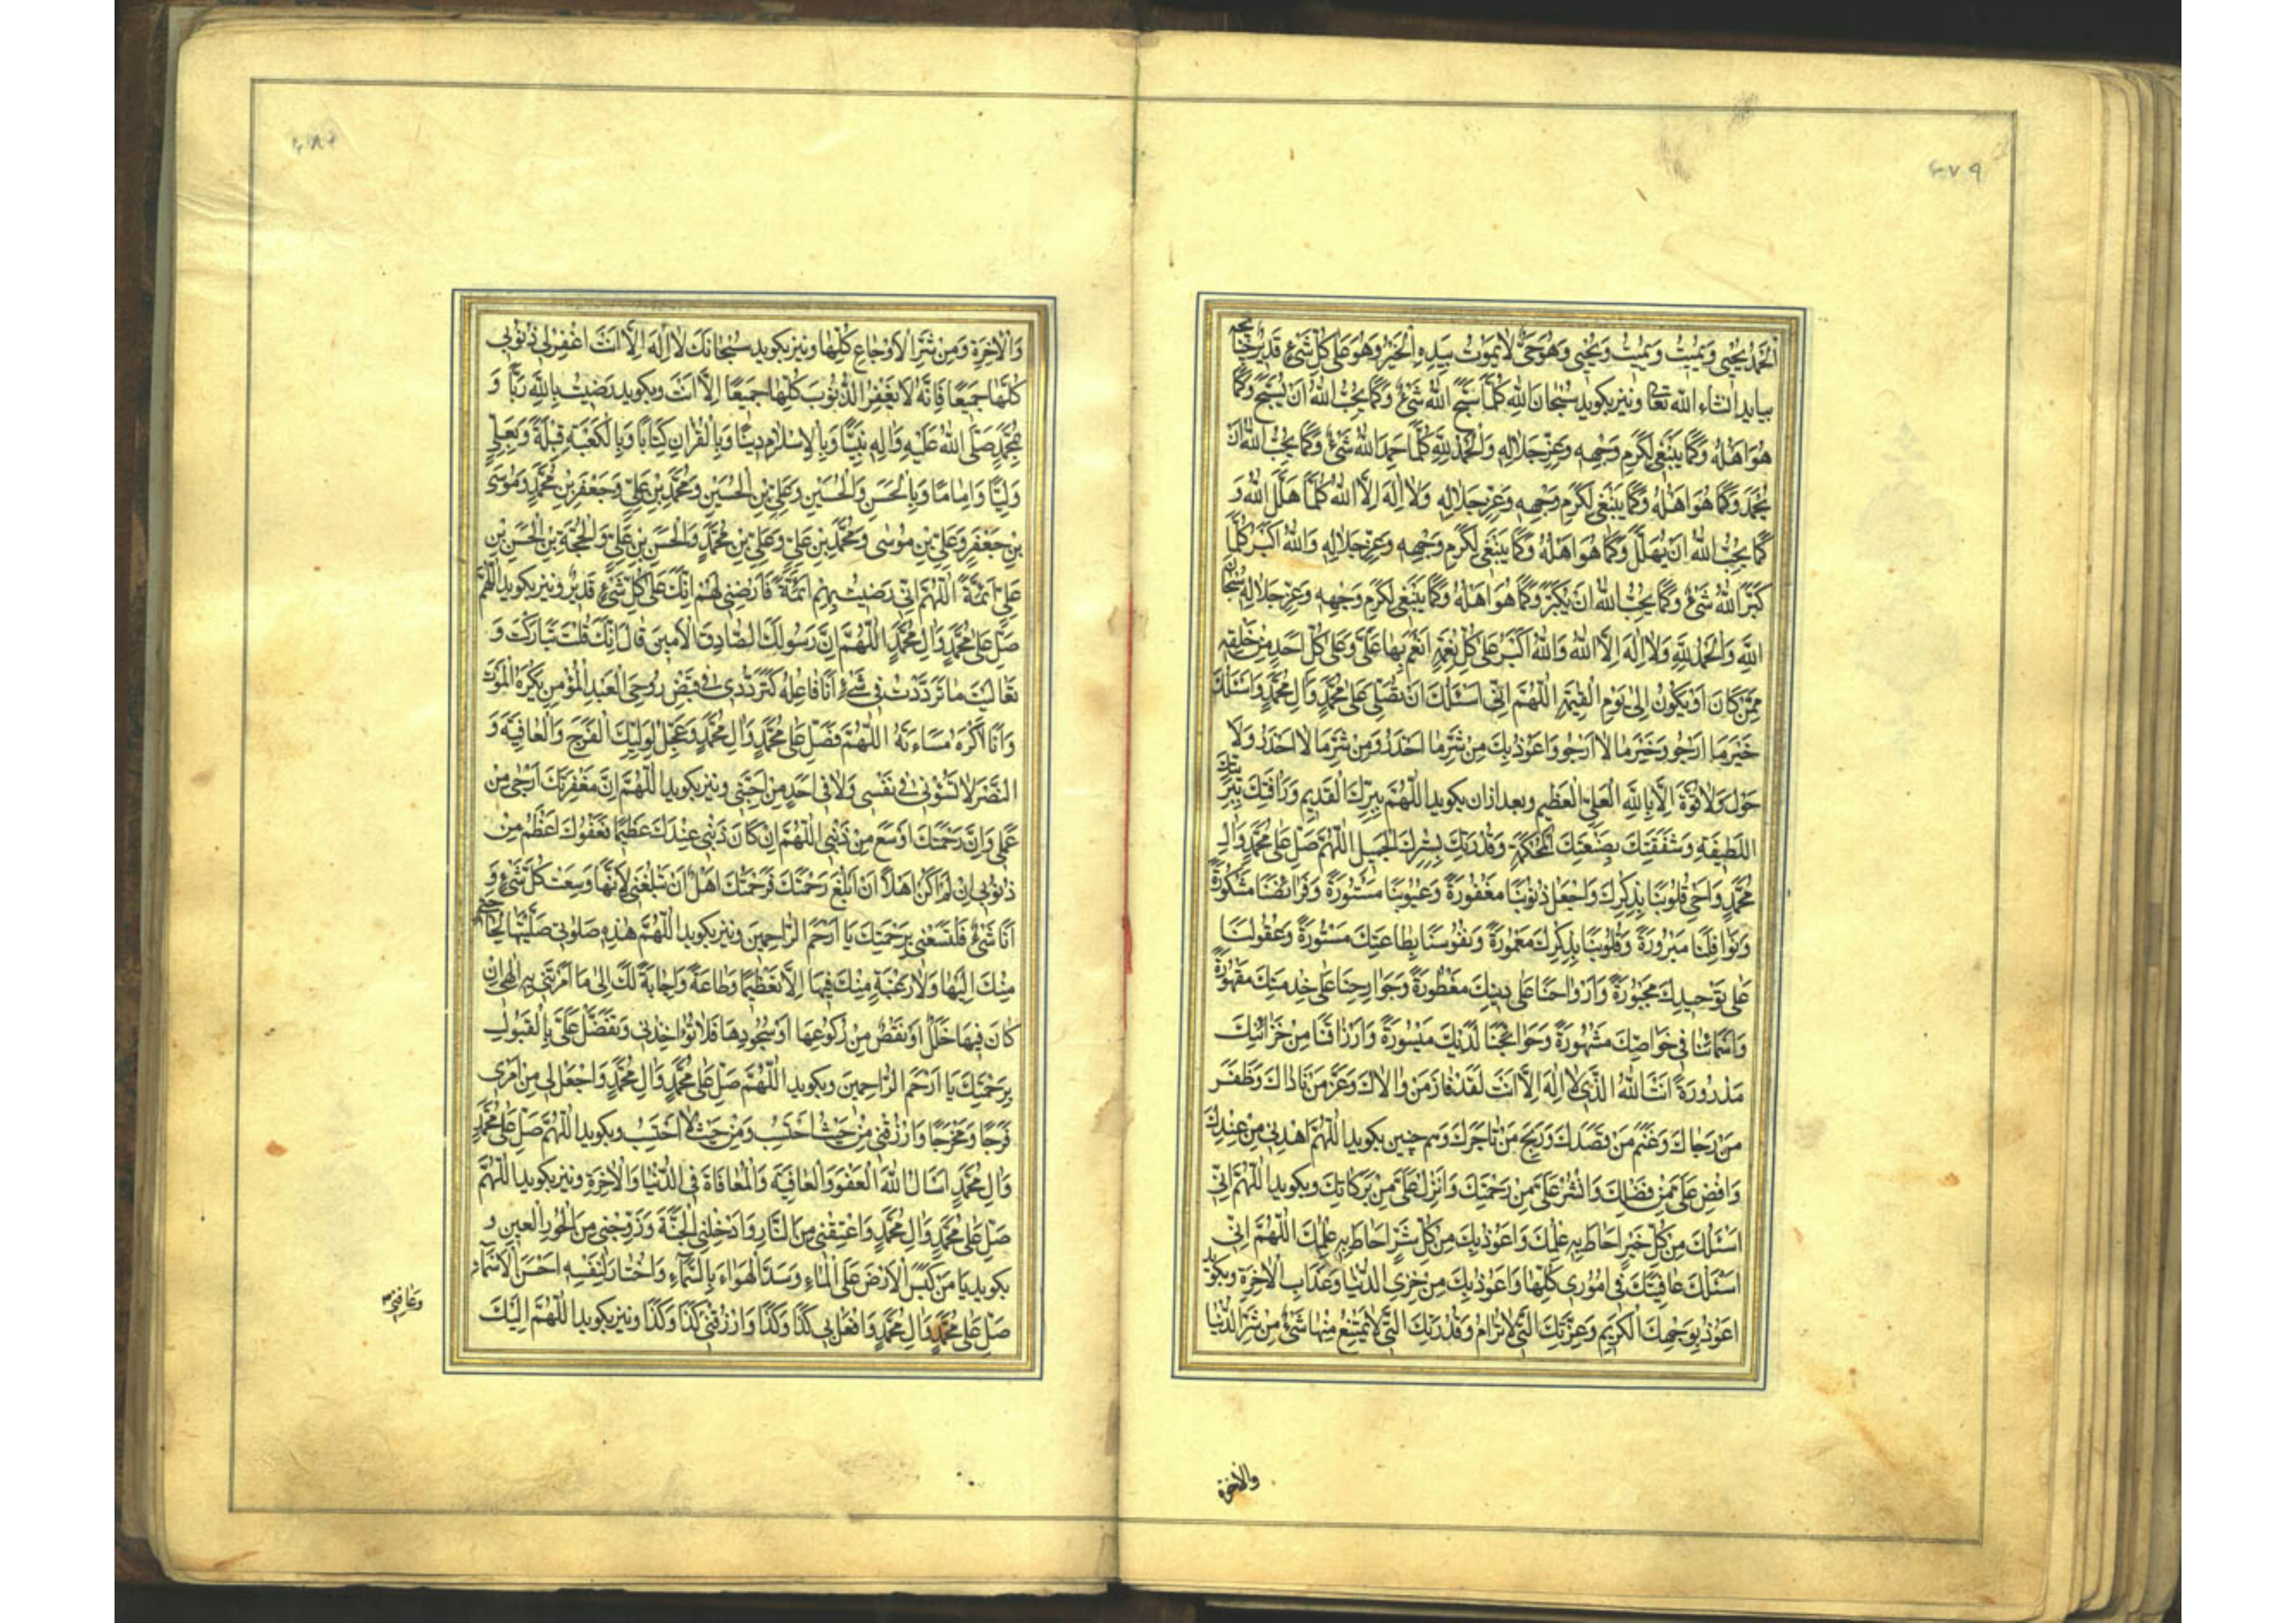 ٤٧٩
الْحَمْدُ يُحْيِي وَيُمِيتُ وَيُمِيتُ وَيُحْيِي وَهُوَ حَيٌّ لَا يَمُوتُ بِيَدِهِ الْخَيْرُ وَهُوَ عَلَى كُلِّ شَيْءٍ قَدِيرٌ چنانچه
بیاید انشاء الله تعالی ونیز بکوید سُبْحَانَ اللهِ كُلَّمَا سَبَّحَ اللهَ شَيْءٌ وَكَمَا يُحِبُّ اللهُ أَنْ يُسَبَّحَ وَكَمَا
هُوَ اَهْلُهُ وَكَمَا يَنْبَغِي لِكَرَمِ وَجْهِهِ وَعِزِّ جَلَالِهِ وَالْحَمْدُ لِلّهِ كُلَّمَا حَمِدَ اللهَ شَيْءٌ وَكَمَا يُحِبُّ اللهُ اَنْ
يُحْمَدَ وَكَمَا هُوَ اَهْلُهُ وَكَمَا يَنْبَغِي لِكَرَمِ وَجْهِهِ وَعِزِّ جَلَالِهِ وَلَا اِلهَ اِلَّا اللهُ كُلَّمَا هَلَّلَ اللهَ وَ
كَمَا يُحِبُّ اللهُ اَنْ يُهَلَّلَ وَكَمَا هُوَ اَهْلُهُ وَكَمَا يَنْبَغِي لِكَرَمِ وَجْهِهِ وَعِزِّ جَلَالِهِ وَاللهُ اَكْبَرُ كُلَّمَا
كَبَّرَ اللهَ شَيْءٌ وَكَمَا يُحِبُّ اللهُ اَنْ يُكَبَّرَ وَكَمَا هُوَ اَهْلُهُ وَكَمَا يَنْبَغِي لِكَرَمِ وَجْهِهِ وَعِزِّ جَلَالِهِ سُبْحَانَ
اللهِ وَالْحَمْدُ لِلّهِ وَلَا اِلهَ اِلَّا اللهُ وَاللهُ اَكْبَرُ عَلَى كُلِّ نِعْمَةٍ اَنْعَمَ بِهَا عَلَيَّ وَعَلَى كُلِّ اَحَدٍ مِنْ خَلْقِهِ
مِمَّنْ كَانَ اَوْ يَكُونُ اِلَى يَوْمِ الْقِيمَةِ اللّهُمَّ اِنِّي اَسْئَلُكَ اَنْ تُصَلِّيَ عَلَى مُحَمَّدٍ وَآلِ مُحَمَّدٍ وَاَسْئَلُكَ
خَيْرَ مَا اَرْجُو وَخَيْرَ مَا لَا اَرْجُو وَاَعُوذُ بِكَ مِنْ شَرِّ مَا اَحْذَرُ وَمِنْ شَرِّ مَا لَا اَحْذَرُ وَلَا
حَوْلَ وَلَا قُوَّةَ اِلَّا بِاللهِ الْعَلِيِّ الْعَظِيمِ وبعد ازان بکوید اللّهُمَّ بِبِرِّكَ الْقَدِيمِ وَرَأْفَتِكَ بِبَرِيَّتِكَ
اللَّطِيفَةِ وَشَفَقَتِكَ بِصَنْعَتِكَ الْمُحْكَمَةِ وَقُدْرَتِكَ بِسِتْرِكَ الْجَمِيلِ اللّهُمَّ صَلِّ عَلَى مُحَمَّدٍ وَآلِ
مُحَمَّدٍ وَاَحْيِ قُلُوبَنَا بِذِكْرِكَ وَاجْعَلْ ذُنُوبَنَا مَغْفُورَةً وَعُيُوبَنَا مَسْتُورَةً وَفَرَائِضَنَا مَشْكُورَةً
وَنَوَافِلَنَا مَبْرُورَةً وَقُلُوبَنَا بِذِكْرِكَ مَعْمُورَةً وَنُفُوسَنَا بِطَاعَتِكَ مَسْرُورَةً وَعُقُولَنَا
عَلَى تَوْحِيدِكَ مَجْبُورَةً وَاَرْوَاحَنَا عَلَى دِينِكَ مَفْطُورَةً وَجَوَارِحَنَا عَلَى خِدْمَتِكَ مَقْهُورَةً
وَاَسْمَائَنَا فِي خَوَاصِّكَ مَشْهُورَةً وَحَوَائِجَنَا لَدَيْكَ مَيْسُورَةً وَاَرْزَاقَنَا مِنْ خَزَائِنِكَ
مَدْرُورَةً اَنْتَ اللهُ الَّذِي لَا اِلهَ اِلَّا اَنْتَ لَقَدْ فَازَ مَنْ وَالَاكَ وَعَزَّ مَنْ نَادَاكَ وَظَفَرَ
مَنْ رَجَاكَ وَغَنِمَ مَنْ قَصَدَكَ وَرَبِحَ مَنْ تَاجَرَكَ وهم چنین بکوید اللّهُمَّ اهْدِنِي مِنْ عِنْدِكَ
وَاَفِضْ عَلَيَّ مِنْ فَضْلِكَ وَانْشُرْ عَلَيَّ مِنْ رَحْمَتِكَ وَاَنْزِلْ عَلَيَّ مِنْ بَرَكَاتِكَ وبکوید اللّهُمَّ اِنِّي
اَسْئَلُكَ مِنْ كُلِّ خَيْرٍ اَحَاطَ بِهِ عِلْمُكَ وَاَعُوذُ بِكَ مِنْ كُلِّ شَرٍّ اَحَاطَ بِهِ عِلْمُكَ اللّهُمَّ اِنِّي
اَسْئَلُكَ عَافِيَتَكَ فِي اُمُورِي كُلِّهَا وَاَعُوذُ بِكَ مِنْ خِزْيِ الدُّنْيَا وَعَذَابِ الْاخِرَةِ وبکوید
اَعُوذُ بِوَجْهِكَ الْكَرِيمِ وَعِزَّتِكَ الَّتِي لَا تُرَامُ وَقُدْرَتِكَ الَّتِي لَا يَمْتَنِعُ مِنْهَا شَيْءٌ مِنْ شَرِّ الدُّنْيَا
والاخرة
٤٨٠
وَالْاخِرَةِ وَمِنْ شَرِّ الْاَوْجَاعِ كُلِّهَا ونیز بکوید سُبْحَانَكَ لَا اِلهَ اِلَّا اَنْتَ اغْفِرْ لِي ذُنُوبِي
كُلَّهَا جَمِيعًا فَاِنَّهُ لَا يَغْفِرُ الذُّنُوبَ كُلَّهَا جَمِيعًا اِلَّا اَنْتَ وبکوید رَضِيتُ بِاللهِ رَبًّا وَ
بِمُحَمَّدٍ صَلَّى اللهُ عَلَيْهِ وَآلِهِ نَبِيًّا وَبِالْاِسْلَامِ دِينًا وَبِالْقُرْانِ كِتَابًا وَبِالْكَعْبَةِ قِبْلَةً وَبِعَلِيٍّ
وَلِيًّا وَاِمَامًا وَبِالْحَسَنِ وَالْحُسَيْنِ وَعَلِيِّ بْنِ الْحُسَيْنِ وَمُحَمَّدِ بْنِ عَلِيٍّ وَجَعْفَرِ بْنِ مُحَمَّدٍ وَمُوسَى
بْنِ جَعْفَرٍ وَعَلِيِّ بْنِ مُوسَى وَمُحَمَّدِ بْنِ عَلِيٍّ وَعَلِيِّ بْنِ مُحَمَّدٍ وَالْحَسَنِ بْنِ عَلِيٍّ وَالْحُجَّةِ بْنِ الْحَسَنِ بْنِ
عَلِيٍّ اَئِمَّةً اللّهُمَّ اِنِّي رَضِيتُ بِهِمْ اَئِمَّةً فَارْضِنِي لَهُمْ اِنَّكَ عَلَى كُلِّ شَيْءٍ قَدِيرٌ ونیز بکوید اللّهُمَّ
صَلِّ عَلَى مُحَمَّدٍ وَآلِ مُحَمَّدٍ اللّهُمَّ اِنَّ رَسُولَكَ الصَّادِقَ الْاَمِينَ قَالَ اِنَّكَ قُلْتَ تَبَارَكْتَ وَ
تَعَالَيْتَ مَا تَرَدَّدْتُ فِي شَيْءٍ اَنَا فَاعِلُهُ كَتَرَدُّدِي فِي قَبْضِ رُوحِ الْعَبْدِ الْمُؤْمِنِ يَكْرَهُ الْمَوْتَ
وَاَنَا اَكْرَهُ مَسَاءَتَهُ اللّهُمَّ فَصَلِّ عَلَى مُحَمَّدٍ وَآلِ مُحَمَّدٍ وَعَجِّلْ لِوَلِيِّكَ الْفَرَجَ وَالْعَافِيَةَ وَ
النَّصْرَ لَا تَسُؤْنِي فِي نَفْسِي وَلَا فِي اَحَدٍ مِنْ اَحِبَّتِي ونیز بکوید اللّهُمَّ اِنَّ مَغْفِرَتَكَ اَرْجَى مِنْ
عَمَلِي وَاِنَّ رَحْمَتَكَ اَوْسَعُ مِنْ ذَنْبِي اللّهُمَّ اِنْ كَانَ ذَنْبِي عِنْدَكَ عَظِيمًا فَعَفْوُكَ اَعْظَمُ مِنْ
ذُنُوبِي اِنْ لَمْ اَكُنْ اَهْلاً اَنْ اَبْلُغَ رَحْمَتَكَ فَرَحْمَتُكَ اَهْلٌ اَنْ تَبْلُغَنِي لِاَنَّهَا وَسِعَتْ كُلَّ شَيْءٍ وَ
اَنَا شَيْءٌ فَلْتَسَعْنِي بِرَحْمَتِكَ يَا اَرْحَمَ الرَّاحِمِينَ ونیز بکوید اللّهُمَّ هذِهِ صَلَوتِي صَلَّيْتُهَا لَا لِحَاجَةٍ
مِنْكَ اِلَيْهَا وَلَا رَغْبَةٍ مِنْكَ فِيهَا اِلَّا تَعْظِيمًا وَطَاعَةً وَاِجَابَةً لَكَ اِلَى مَا اَمَرْتَنِي بِهِ اِلهِي اِنْ
كَانَ فِيهَا خَلَلٌ اَوْ نَقْصٌ مِنْ رُكُوعِهَا اَوْ سُجُودِهَا فَلَا تُؤَاخِذْنِي وَتَفَضَّلْ عَلَيَّ بِالْقَبُولِ
بِرَحْمَتِكَ يَا اَرْحَمَ الرَّاحِمِينَ وبکوید اللّهُمَّ صَلِّ عَلَى مُحَمَّدٍ وَآلِ مُحَمَّدٍ وَاجْعَلْ لِي مِنْ اَمْرِي
فَرَجًا وَمَخْرَجًا وَارْزُقْنِي مِنْ حَيْثُ اَحْتَسِبُ وَمِنْ حَيْثُ لَا اَحْتَسِبُ وبکوید اللّهُمَّ صَلِّ عَلَى مُحَمَّدٍ
وَآلِ مُحَمَّدٍ اَسْاَلُ اللهَ الْعَفْوَ وَالْعَافِيَةَ وَالْمُعَافَاةَ فِي الدُّنْيَا وَالْاخِرَةِ ونیز بکوید اللّهُمَّ
صَلِّ عَلَى مُحَمَّدٍ وَآلِ مُحَمَّدٍ وَاعْتِقْنِي مِنَ النَّارِ وَاَدْخِلْنِي الْجَنَّةَ وَزَوِّجْنِي مِنَ الْحُورِ الْعِينِ و
بکوید يَا مَنْ كَبَسَ الْاَرْضَ عَلَى الْمَاءِ وَسَدَّ الْهَوَاءَ بِالسَّمَاءِ وَاخْتَارَ لِنَفْسِهِ اَحْسَنَ الْاَسْمَاءِ
صَلِّ عَلَى مُحَمَّدٍ وَآلِ مُحَمَّدٍ وَافْعَلْ بِي كَذَا وَكَذَا وَارْزُقْنِي كَذَا وَكَذَا ونیز بکوید اللّهُمَّ اِلَيْكَ